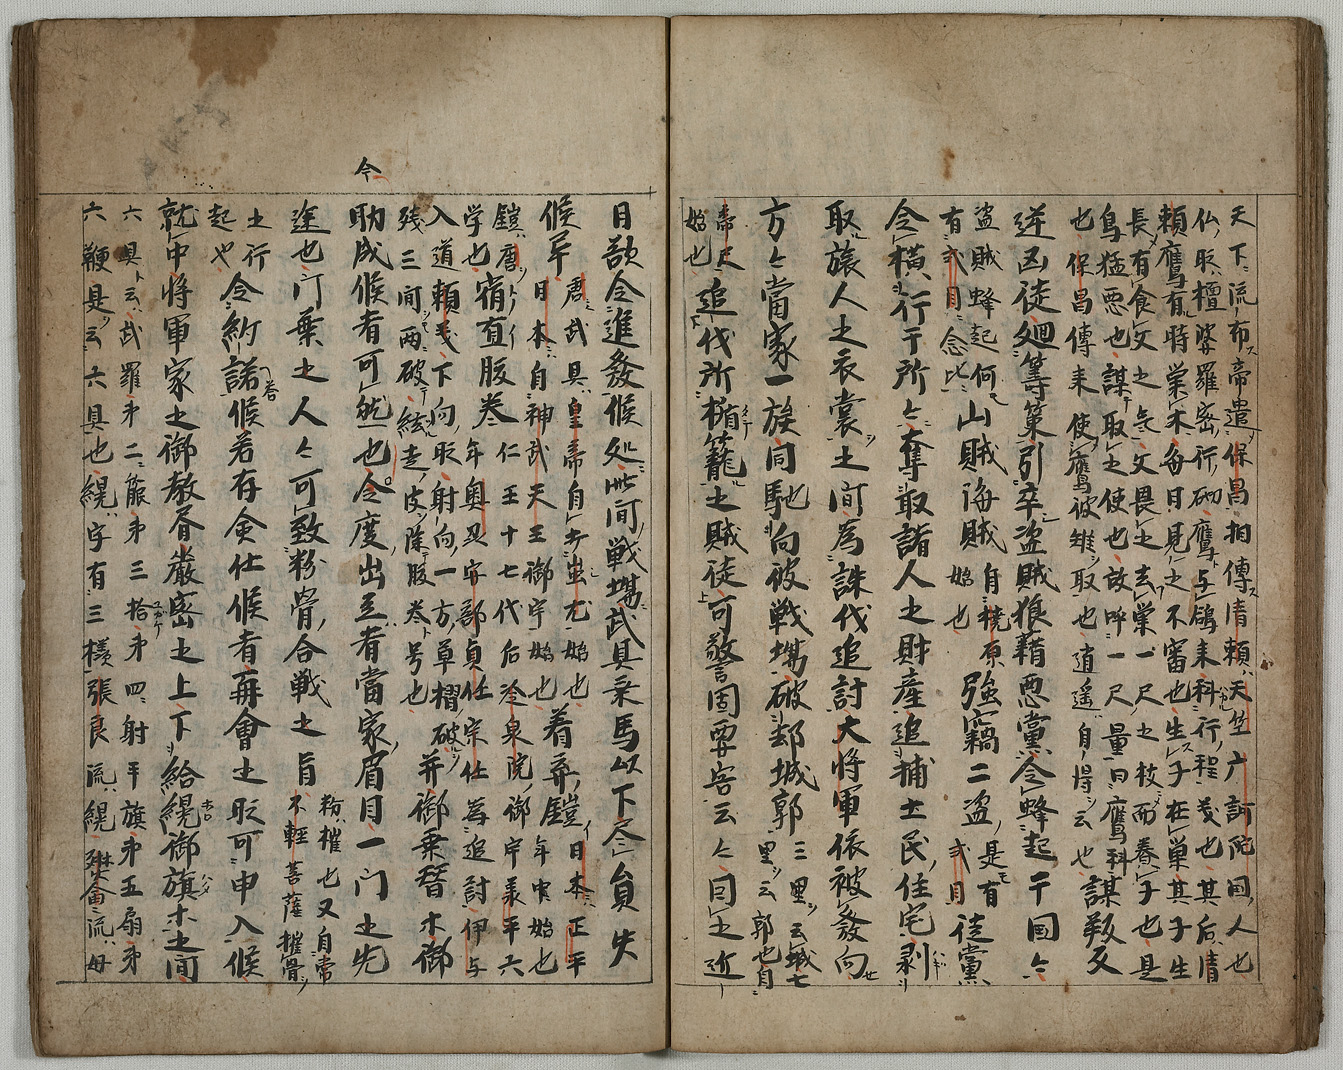 天下流布帝遣保昌相傳清頼天竺广訶陀国人也
仏取檀婆羅密行砌鷹与鴿来科行程義也其后清
頼鷹有時巣木毎日見之不審也生子在巣其子生
長有食父之无父畏之去巣一尺之枝而養子也是
鳥猛悪也謀取之使也放呼一尺量曰鷹科
也保昌傳来使鷹彼雉取也逍遥自得云也
謀叛反
逆凶徒廻等策引卒盗賊狼藉悪黨令蜂起于国々
盗賊蜂起何
有貳具念比
山賊海賊
自桃原
始也
強竊二盗
是有
貳具
徒黨
令横行于所々奪取諸人之財産追捕土民住宅剥
取旅人之衣裳之間為誅伐追討大将軍依被發向
方々當家一族同馳向彼戦場破却城郭
三里云城七
里云郭也自
帝尺
始也
追伐所楯籠之賊徒可警固要害云々同之近
日欲令進發候処此間戦場武具乗馬以下尽員失
候畢
唐武具皇帝自切蚩尤始也
日本自神武天王御宇始也
着弃鎧
日本正平
年中始也
鎧唐
学也
宿直腹巻
仁王十七代后冷泉院御宇義平六
年奥羽宇部貞仕宗仕為追討伊与
入道頼義下向取射向一方草摺破
残三間両破絃走皮隆腹巻号也
并御乗替木御
助成候者可然也今度出立者當家眉目一門之先
今
途也汀葉之人々可致粉骨合戦之旨
粉摧也又自常
不輕菩薩摧骨
土行
起や
令約諾候若存命仕候者再會之時可申入候
就中将軍家之御教書嚴密之上下給縨御旗木之間
六具云武羅弟二箙弟三拾弟四射干旗弟五扇弟
六鞭是云六具也縨字有三様張良流縨樊會流母